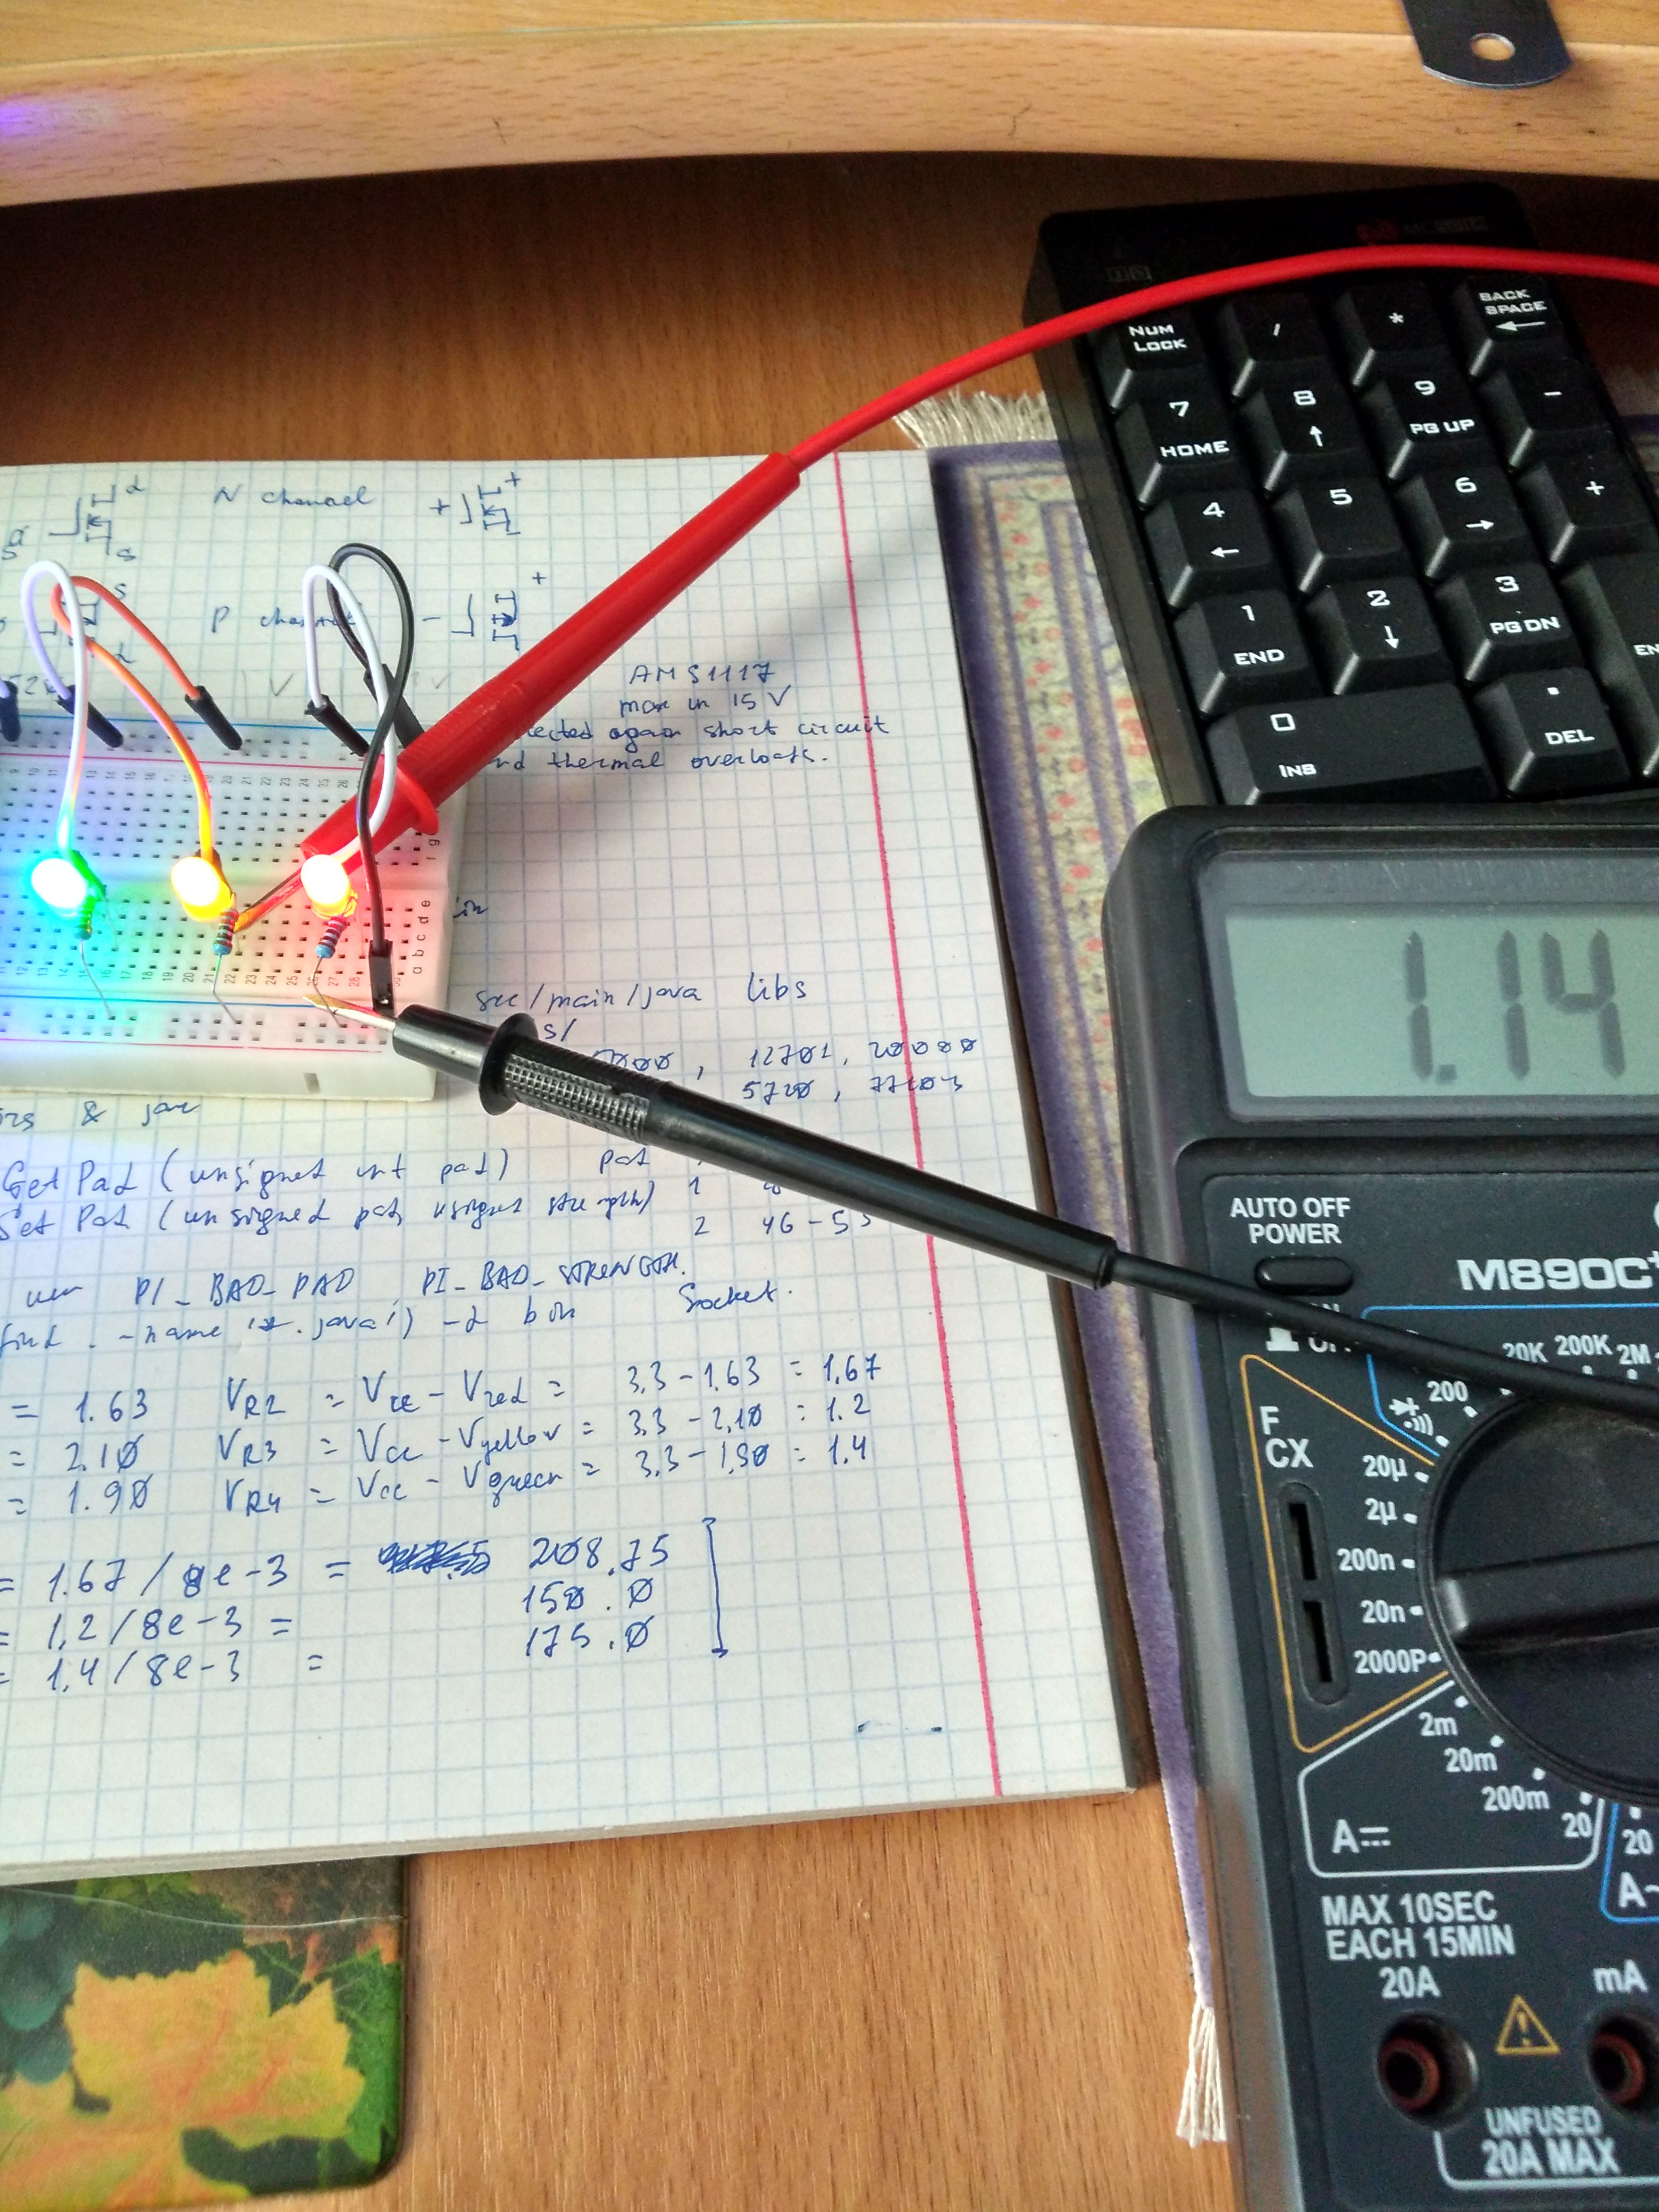 NUM LOCK
/
*
BACK SPACE
7 HOME
8
9 PG UP
-
4
5
6
+
1 END
2
3 PG DN
0 INS
. DEL
d
N channel
+
+
s
s
P
-
+
AMS1117
max in 15 V
short circuit
thermal overloads.
a b c d e
src/main/java libs
s/
, 12701, 20000
5720,
& jar
GetPad (unsigned int pad) pad
1
Set Pad (unsigned pad, strength)
2 46-53
PI_BAD_PAD PI_BAD_STRENGTH.
find . -name '*.java') -d bin Socket.
= 1.63 VR2 = Vcc - Vred = 3.3 - 1.63 = 1.67
= 2.10 VR3 = Vcc - Vyellow = 3.3 - 2.10 = 1.2
= 1.90 VR4 = Vcc - Vgreen = 3.3 - 1.90 = 1.4
= 1.67 / 8e-3 = 208.75
= 1.2 / 8e-3 = 150.0
= 1.4 / 8e-3 = 175.0
1.14
AUTO OFF
POWER
M890C+
20K 200K 2M
200
F
CX
20µ
2µ
200n
20n
2000P
2m
20m
200m
20
20
A
A~
MAX 10SEC
EACH 15MIN
20A
mA
UNFUSED
20A MAX